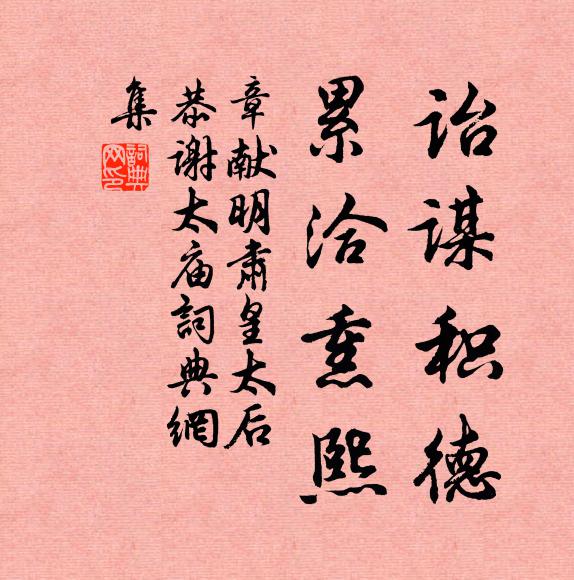 诒谋积德
累洽熏熙
章献明肃皇太后
恭谢太庙词典網
集
詞典網印